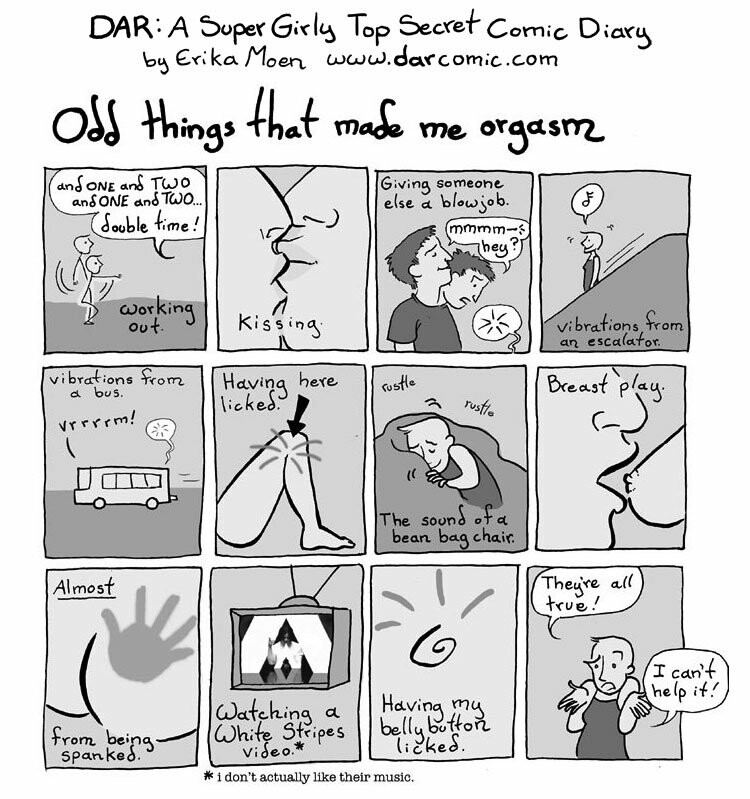 DAR: A Super Girly Top Secret Comic Diary
by Erika Moen www.darcomic.com
Odd things that made me orgasm
and ONE and TWO
and ONE and TWO...
double time!
working
out.
Kissing.
Giving someone
else a blowjob.
mmmm-
hey?
vibrations from
an escalator.
vibrations from
a bus.
vrrrrm!
Having here
licked.
rustle
rustle
The sound of a
bean bag chair.
Breast play.
Almost
from being
spanked.
Watching a
White Stripes
video.*
Having my
belly button
licked.
They're all
true!
I can't
help it!
* i don't actually like their music.